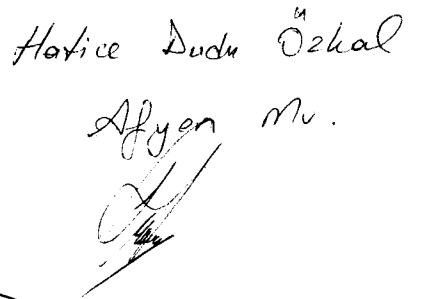 Hatice Dudu Özkal
Afyon Mv.